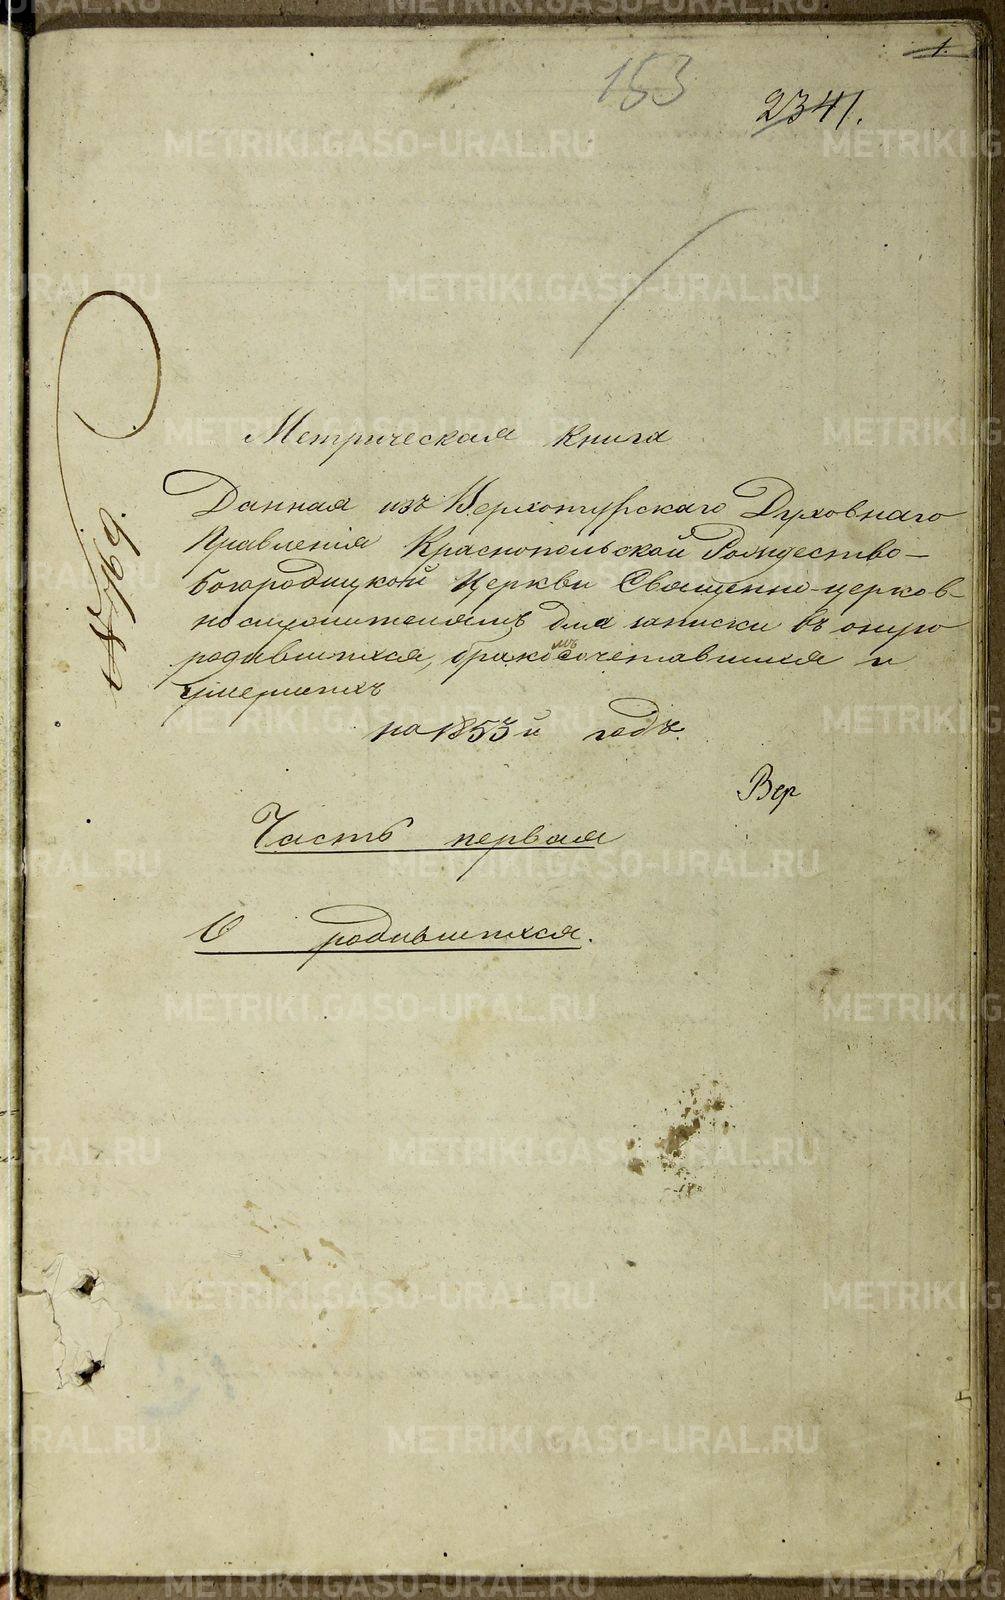 1.
153
2341.
№ 769.
Метрическая книга
Данная изъ Верхотурскаго Духовнаго
Правленія Краснопольской Рождество-
богородицкой Церкви Священно-церков-
нослужителямъ для записки въ оную
родившихся, бракомъ сочетавшихся и
умершихъ
на 1853й годъ.
Вер
Часть первая
О родившихся.
METRIKI.GASO-URAL.RU